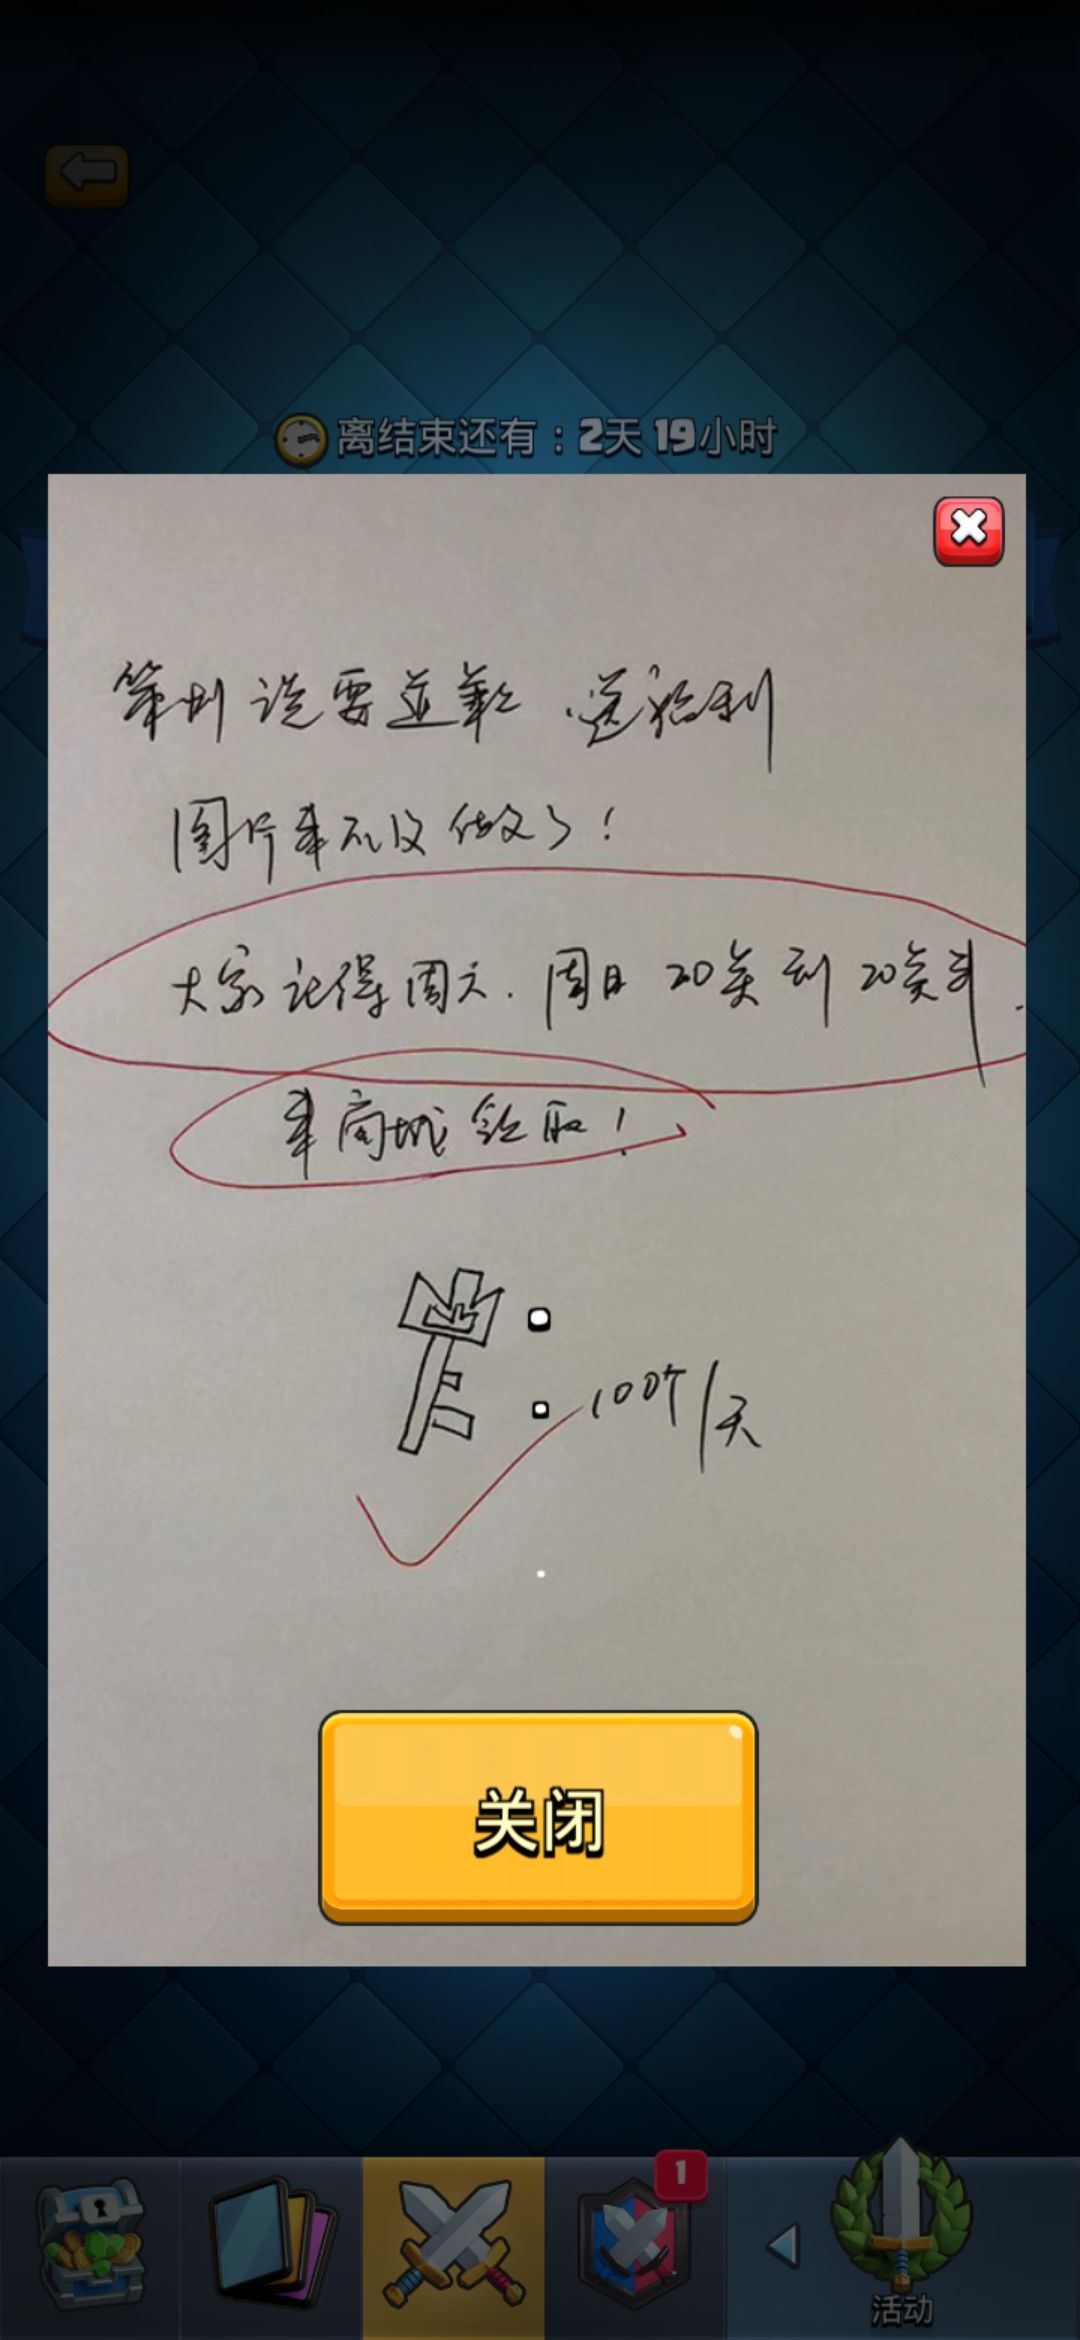 离结束还有：2天 19小时
策划说要道歉，送福利
图片来不及做了！
大家记得周六、周日 20点到20点半
来商城领取！
100个/天
关闭
1
活动